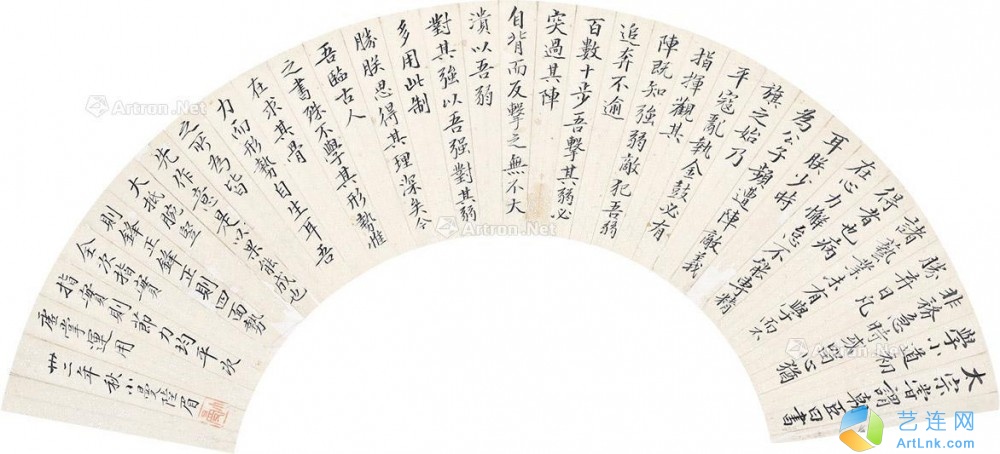 太宗嘗謂朝臣曰書
學小道初
非務急時或留心猶
勝棄日凡
諸藝業未有學而不
得者也病
在心力懈怠不能專精
耳朕少時
為公子頻遭陣敵義
旗之始乃
平寇亂執金鼓必有
指揮觀其
陣既知強弱敵犯吾弱
追奔不逾
百數十步吾擊其弱必
突過其陣
自背而反擊之無不大
潰以吾弱
對其強以吾强對其弱
多用此制
勝朕思得其理深矣今
吾臨古人
之書殊不學其形勢惟
在求其骨
力而形勢自生耳吾
之所為皆
先作意是以果能成也
大抵腕豎
則鋒正鋒正則四面勢
全次指實
指實則節力均平次
虛掌運用
卅二年秋小曼陸眉
Artron.Net
Artron.Net
Artron.Net
Artron.Net
Artron.Net
艺连网
ArtLnk.com